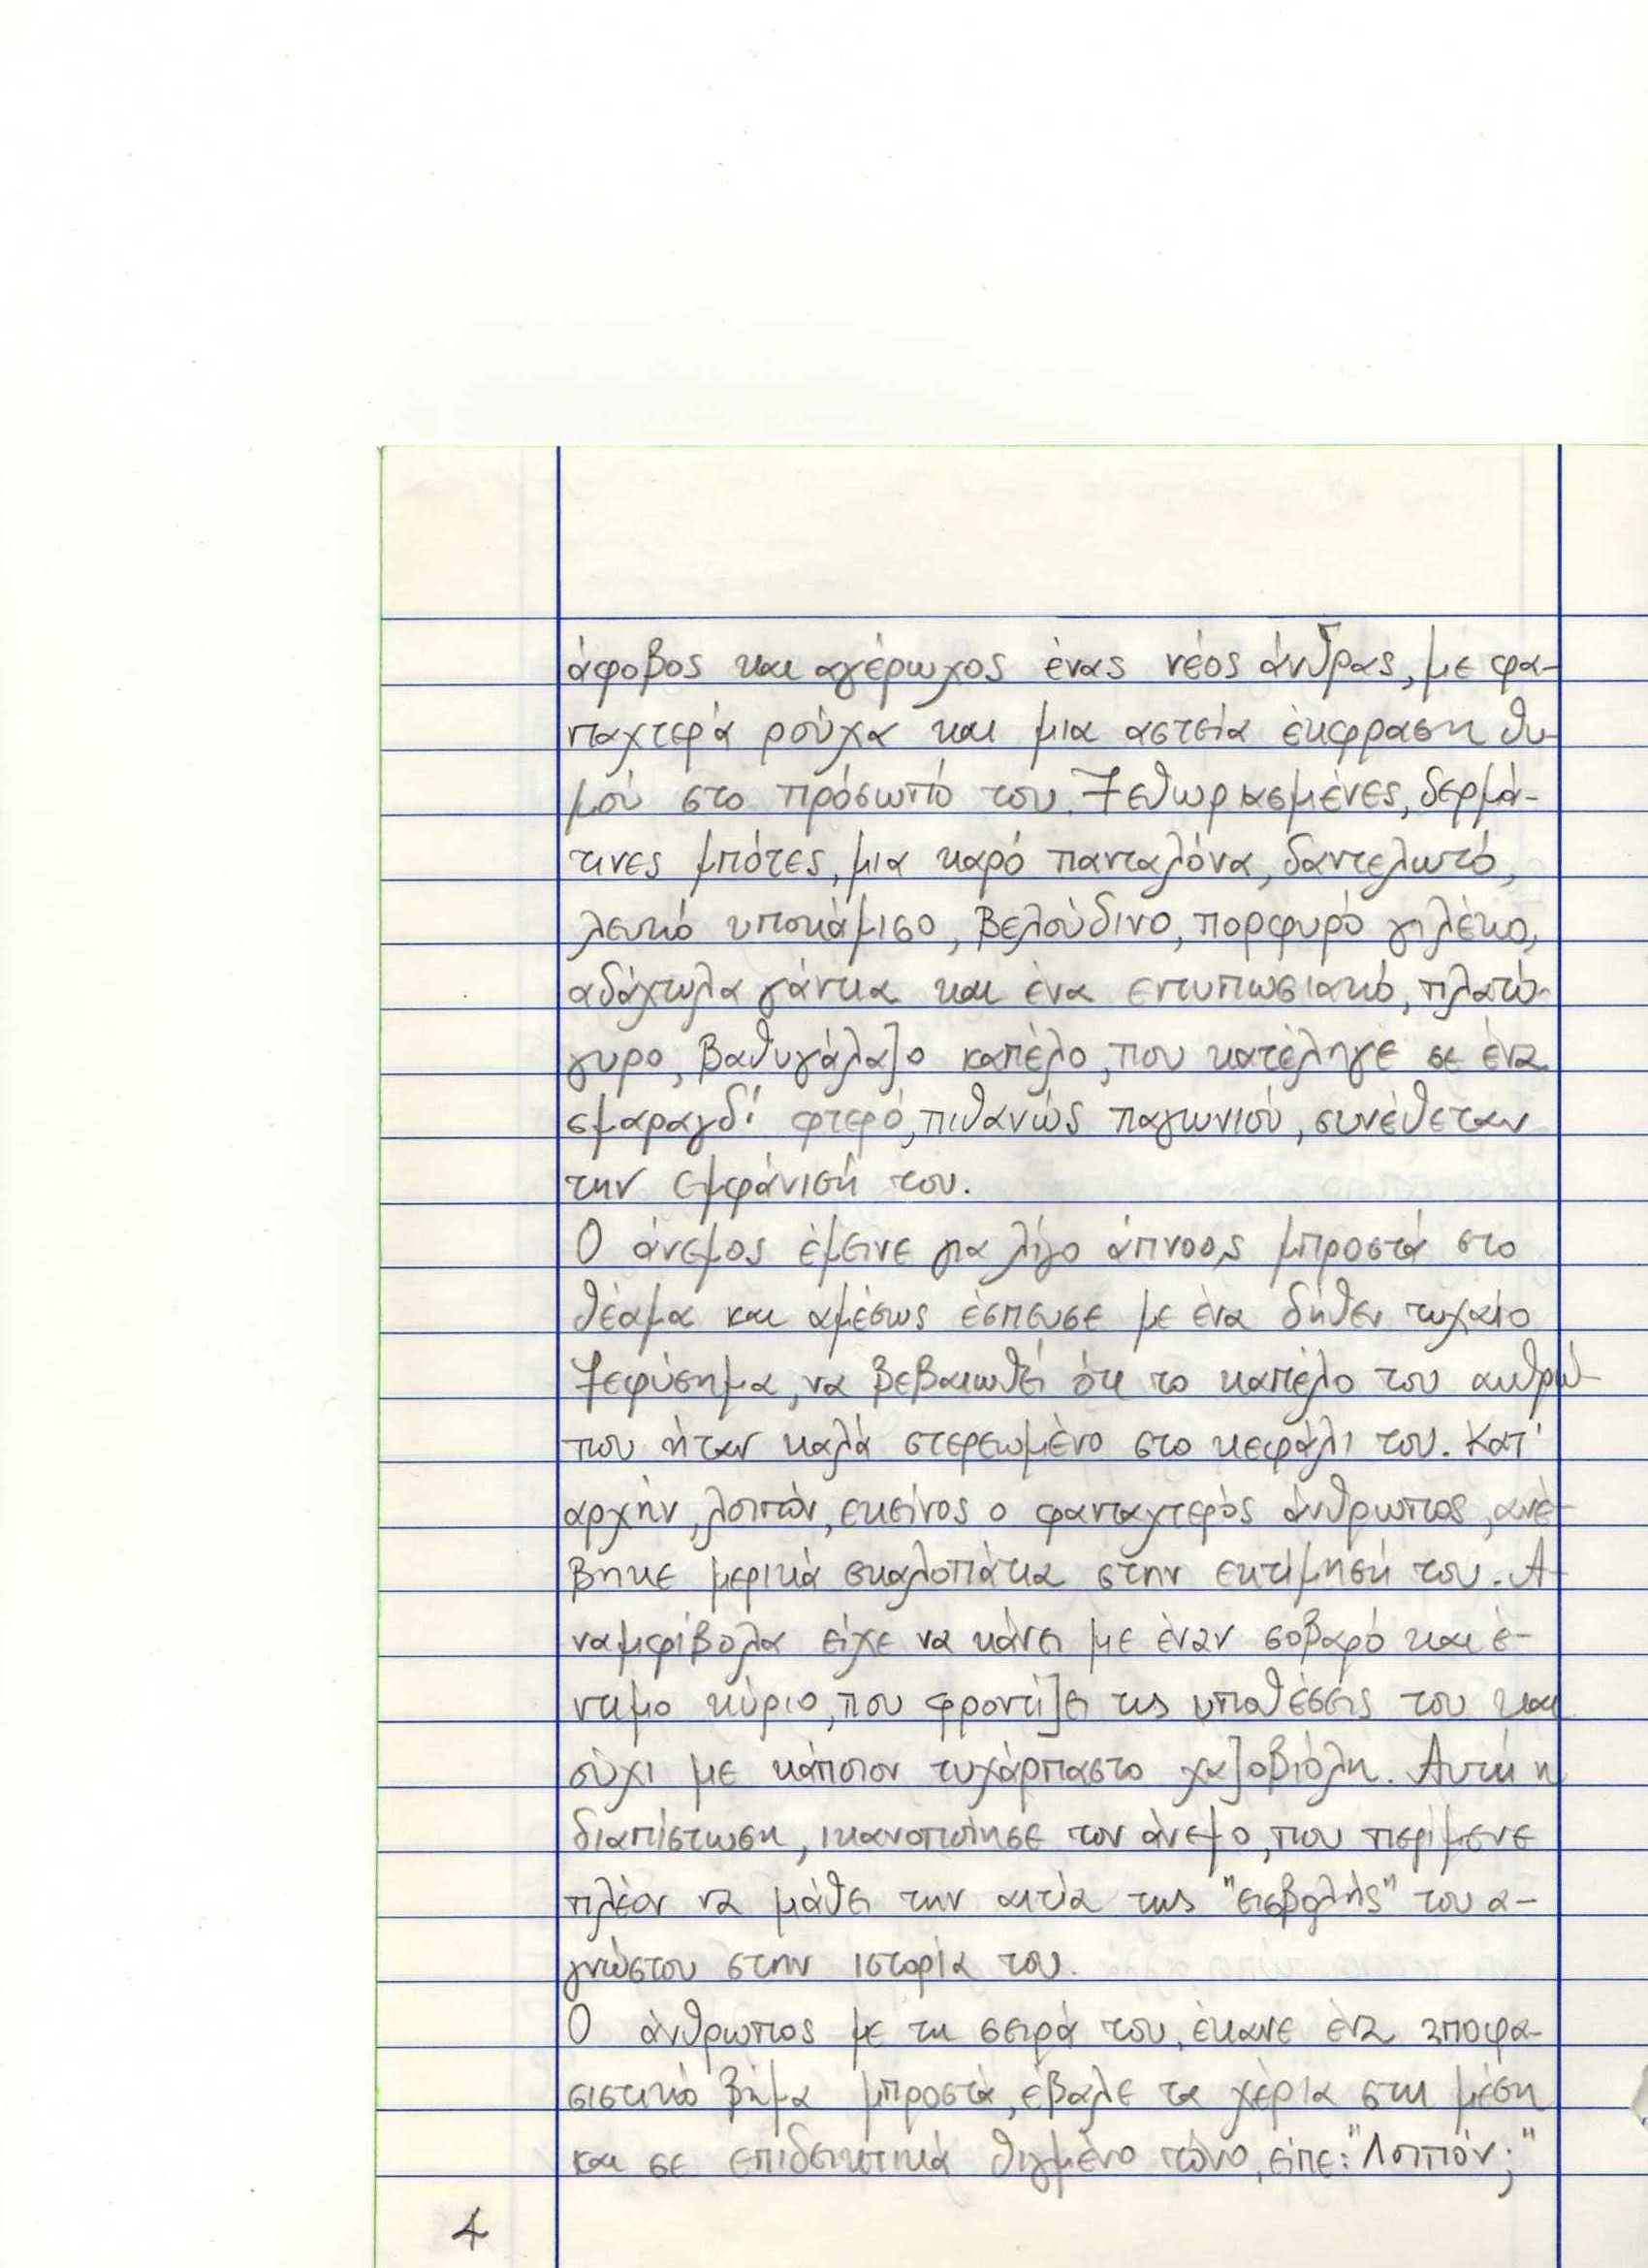 άφοβος και αγέρωχος ένας νέος άνδρας, με φα-
νταχτερά ρούχα και μια αστεία έκφραση θυ-
μού στο πρόσωπό του. Ξεθωριασμένες, δερμά-
τινες μπότες, μια καρό πανταλόνα, δαντελωτό,
λευκό υποκάμισο, βελούδινο, πορφυρό γιλέκο,
αδάχτυλα γάντια και ένα εντυπωσιακό, πλατύ-
γυρο, βαθυγάλαζο καπέλο, που κατέληγε σε ένα
σμαραγδί φτερό, πιθανώς παγωνιού, συνέθεταν
την εμφάνισή του.
Ο άνεμος έμεινε για λίγο άπνοος μπροστά στο
θέαμα και αμέσως έσπευσε με ένα δήθεν τυχαίο
ξεφύσημα, να βεβαιωθεί ότι το καπέλο του ανθρώ-
που ήταν καλά στερεωμένο στο κεφάλι του. Κατ'
αρχήν, λοιπόν, εκείνος ο φανταχτερός άνθρωπος, ανέ-
βηκε μερικά σκαλοπάτια στην εκτίμησή του. Α-
ναμφίβολα είχε να κάνει με έναν σοβαρό και έ-
ντιμο κύριο, που φροντίζει τις υποθέσεις του και
ούχι με κάποιον τυχάρπαστο χαζοβιόλη. Αυτή η
διαπίστωση, ικανοποίησε τον άνεμο, που περίμενε
πλέον να μάθει την αιτία της "εισβολής" του α-
γνώστου στην ιστορία του.
Ο άνθρωπος με τη σειρά του, έκανε ένα αποφα-
σιστικό βήμα μπροστά, έβαλε τα χέρια στη μέση
και σε επιδεικτικά θιγμένο τόνο, είπε: "Λοιπόν;"
4